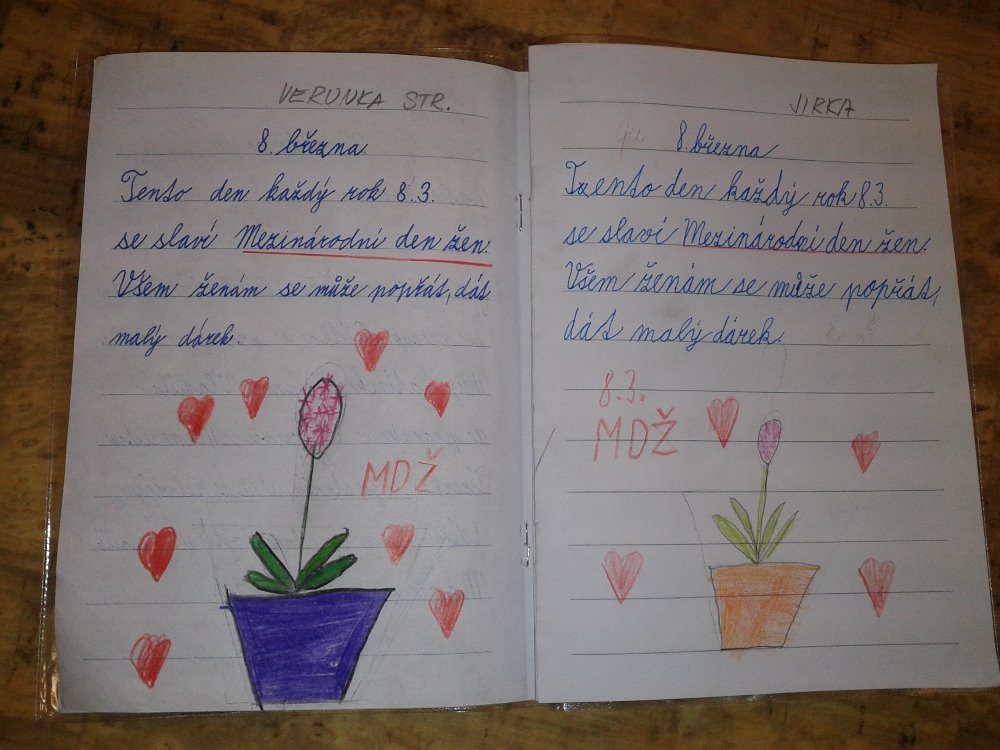 VERUNKA STR.
8. března.
Tento den každý rok 8.3.
se slaví Mezinárodní den žen.
Všem ženám se může popřát, dát
malý dárek.
MDŽ
JIRKA
8. března
Tento den každý rok 8.3.
se slaví Mezinárodní den žen.
Všem ženám se může popřát,
dát malý dárek.
8.3.
MDŽ